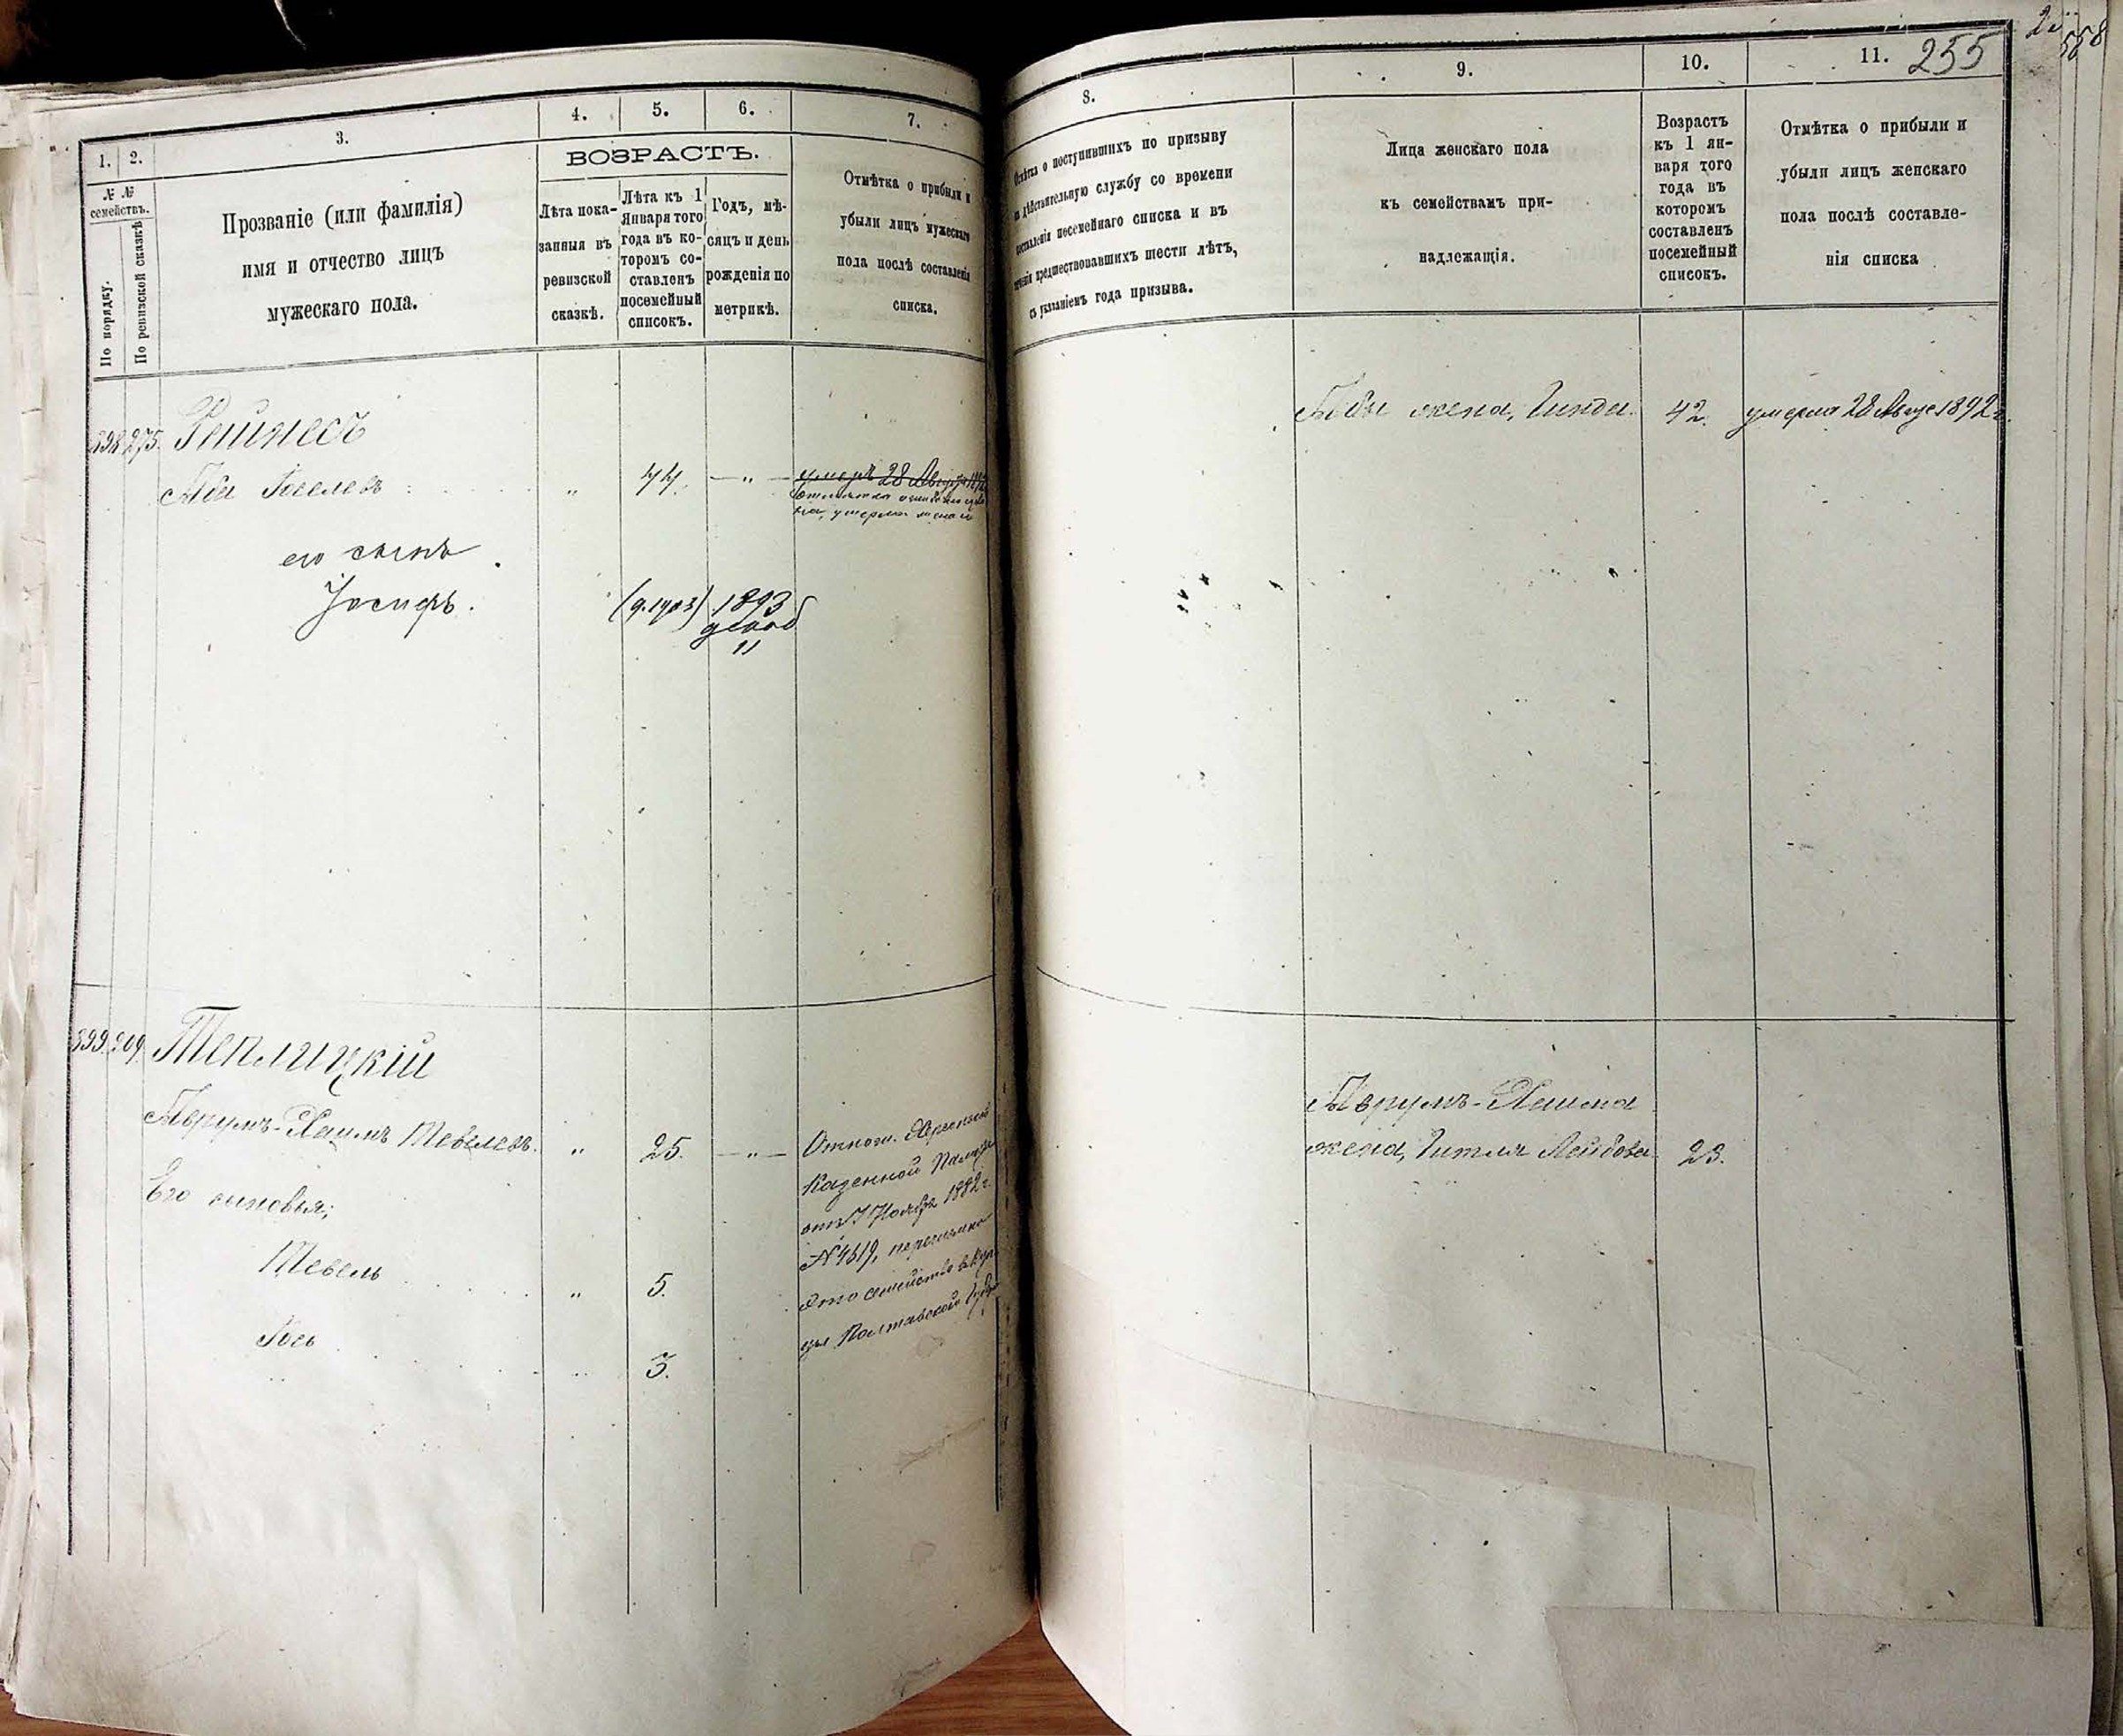 1.
2.
3.
4.
5.
6.
7.
№ №
семействъ.
По порядку.
По ревизской сказкѣ
Прозваніе (или фамилія)
имя и отчество лицъ
мужескаго пола.
ВОЗРАСТЪ.
Лѣта пока-
занныя въ
ревизской
сказкѣ.
Лѣта къ 1
Января того
года въ ко-
торомъ со-
ставленъ
посемейный
списокъ.
Годъ, мѣ-
сяцъ и день
рожденія по
метрикѣ.
Отмѣтка о прибыли и
убыли лицъ мужескаго
пола послѣ составленія
списка.
398 275. Рейнесъ
Аба Іоселевъ 44. умеръ 28 Август 1892
умерла жена
его сынъ
Іосифъ. 1893
11
399 209. Теплицкій
Аврумъ-Хаимъ Тевелевъ. 25.
Его сыновья;
Тевель 5.
Іось 3.
Относ. Херсонской
Казенной Палаты
отъ 7 Ноября 1882 г.
№ 4519, перечислено
это семейство въ куп-
цы Полтавской губер
8.
9.
10.
11.
255
558
Отмѣтка о поступившихъ по призыву
на дѣйствительную службу со времени
составленія посемейнаго списка и въ
теченіи предшествовавшихъ шести лѣтъ,
съ указаніемъ года призыва.
Лица женскаго пола
къ семействамъ при-
надлежащія.
Возрастъ
къ 1 ян-
варя того
года въ
которомъ
составленъ
посемейный
списокъ.
Отмѣтка о прибыли и
убыли лицъ женскаго
пола послѣ составле-
нія списка
Абы жена, Гинда. 42. умерла 28 Авгус 1892 г.
Аврумъ-Хаима
жена, Гитля Лейбова 23.